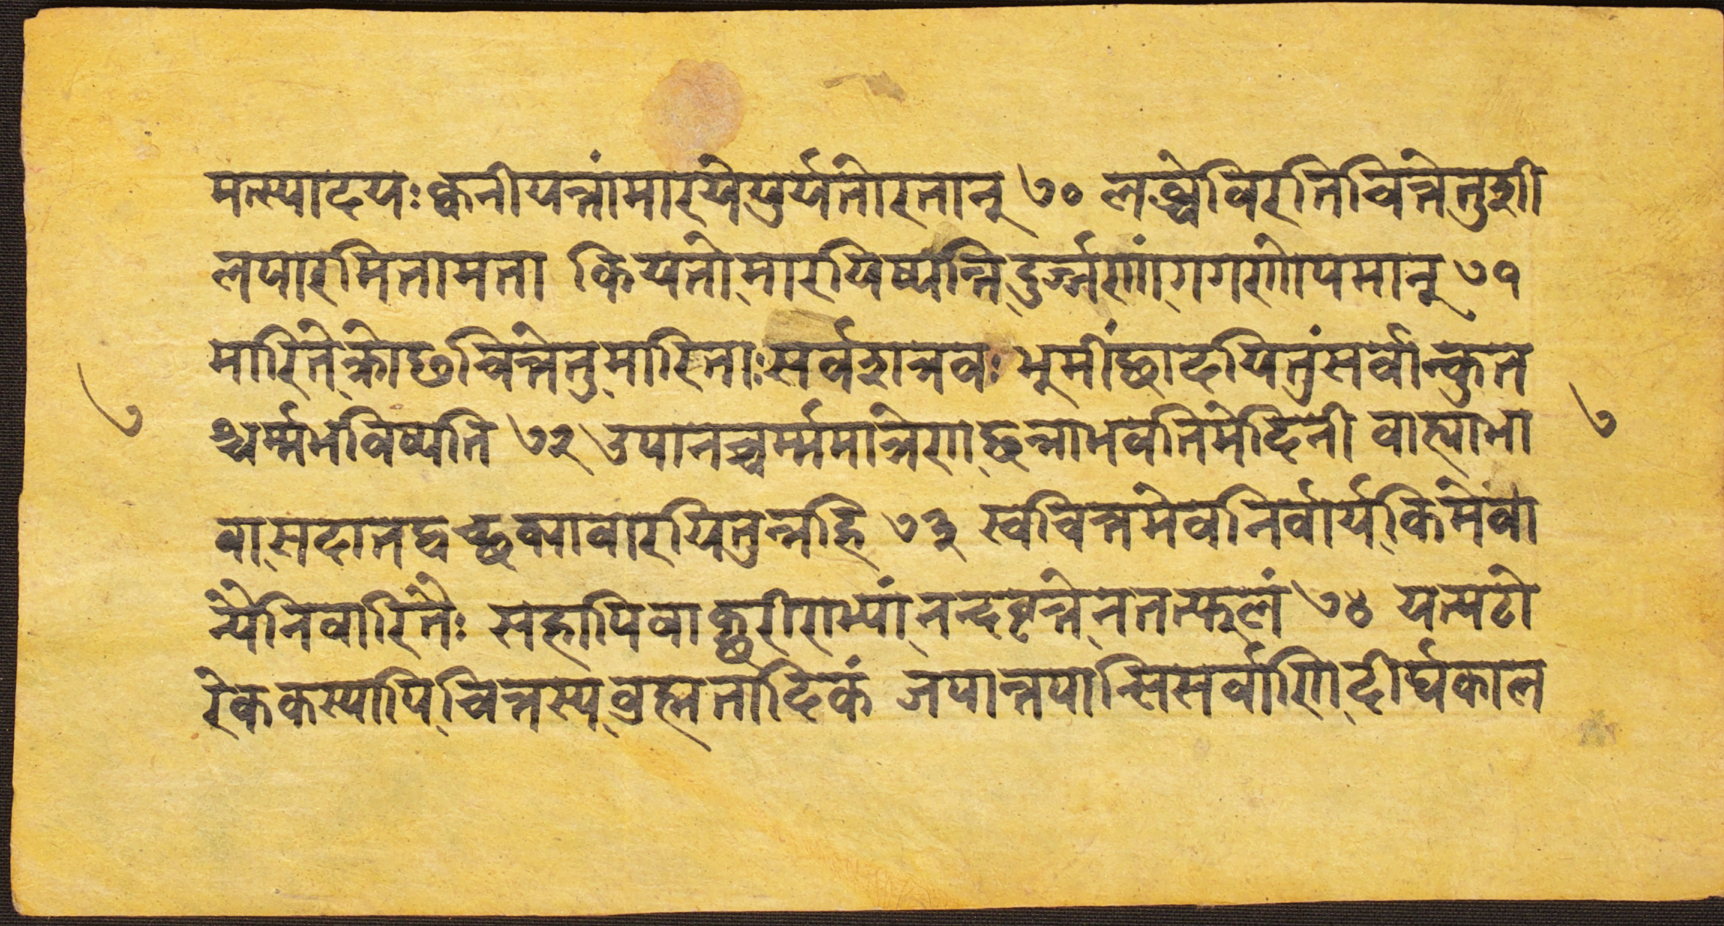 मत्स्यादयः क्वनीयन्तां मारयेयुर्यतो रतान् ७० लब्धे विरतिचित्ते तु शी
लपारमिता मता कियतो मारयिष्यन्ति दुर्ज्जणां गगणोपमान् ७१
मारिते क्रोधचित्ते तु मारिताः सर्वशत्रवः भूमीं छादयितुं सर्वान् कुत
श्चर्म्म भविष्यति ७२ उपानच्चर्म्ममात्रेण छन्ना भवति मेदिनी वाह्या भा
वा सदा तद्वच्छक्या वारयितुन्नहि ७३ स्वचित्तमेव निर्वार्य किमेवा
न्यै निवारितैः सहापि वाक्छरीराभ्यां नन्दवृत्ते न तत्फलं ७४ यत्पटो
रेककस्यापि चित्तस्य ब्रह्मतादिकं जपान्तपान्सि सर्वाणि दीर्घकाल
७
७